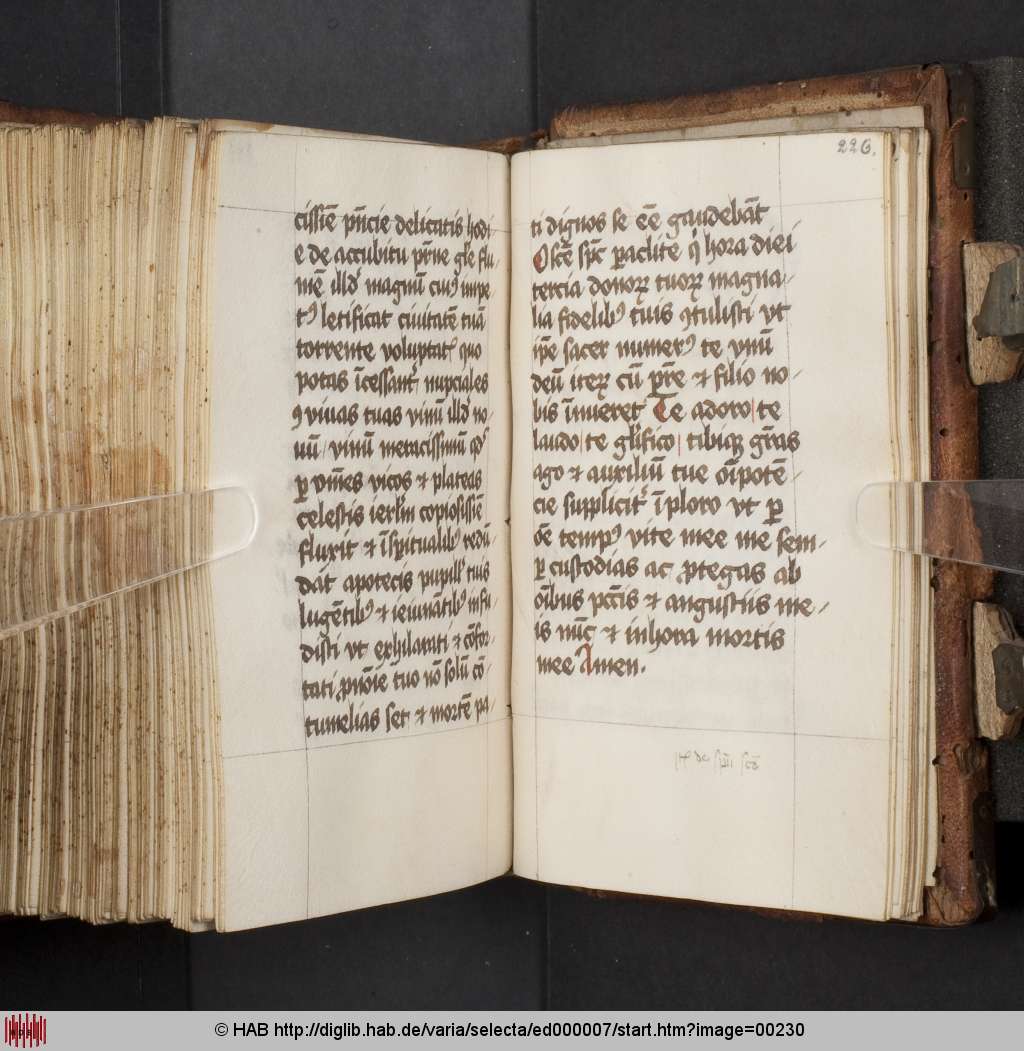 cissiē pn̄cie delicatis hodi-
e de accubitu pr̄ne glē flu-
mē illd̓ magnū cuiꝰ impe-
tꝰ letificat ciuitatē tuā
torrente voluptatꝭ quo
potas īcessant̓ nupciales
ꝯviuas tuas vinū illd̓ no-
uū / vinū meracissimū qd̓
ꝑ om̄es vicos ⁊ plateas
celestis ierlm̄ copiosissiē
fluxit ⁊ ī spūalibꝰ redū-
dāt apotecis pupillꝭ tuis
lugētibꝰ ⁊ ieiunātibꝰ infu-
disti vt exhilarati ⁊ cōfor-
tati ꝓ nōie tuo nō solū cō-
tumelias set ⁊ mortē pa-
226.
ti dignos se eē gaudebāt
O scē spc̄ paraclite qͥ hora diei
tercia donoꝝ tuoꝝ magna-
lia fidelibꝰ tuis ꝯtulisti vt
ip̄e sacer numerꝰ te vnū
deū iteꝝ cū pr̄e ⁊ filio no-
bis īnueret Te adoro / te
laudo / te glīfico / tibiqꝫ gr̄as
ago ⁊ auxiliū tue oīpotē-
cie supplicit̓ īploro vt ꝑ
oē tempꝰ vite mee me sem-
ꝑ custodias ac ꝓtegas ab
oībus pccīs ⁊ angustiis me-
is nūc ⁊ in hora mortis
mee Amen.
de spū scō
© HAB http://diglib.hab.de/varia/selecta/ed000007/start.htm?image=00230